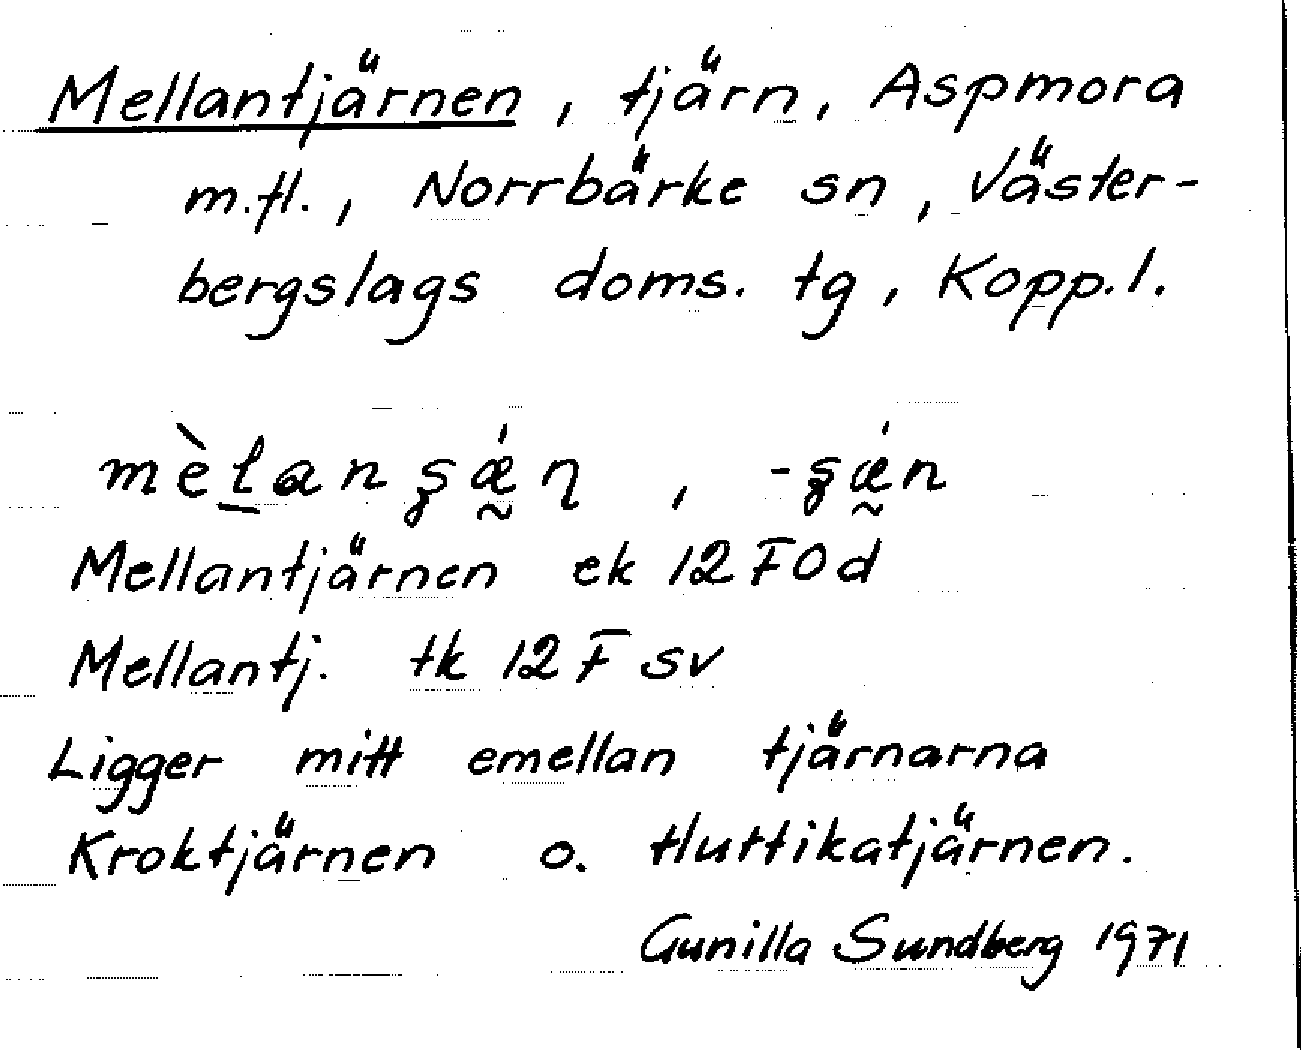 Mellantjärnen, tjärn, Aspmora
m.fl., Norrbärke sn, Väster-
bergslags doms. tg, Kopp.l.
Mellantjärnen ek 12F0d
Mellantj. tk 12F sv
Ligger mitt emellan tjärnarna
Kroktjärnen o. Huttikatjärnen.
Gunilla Sundberg 1971